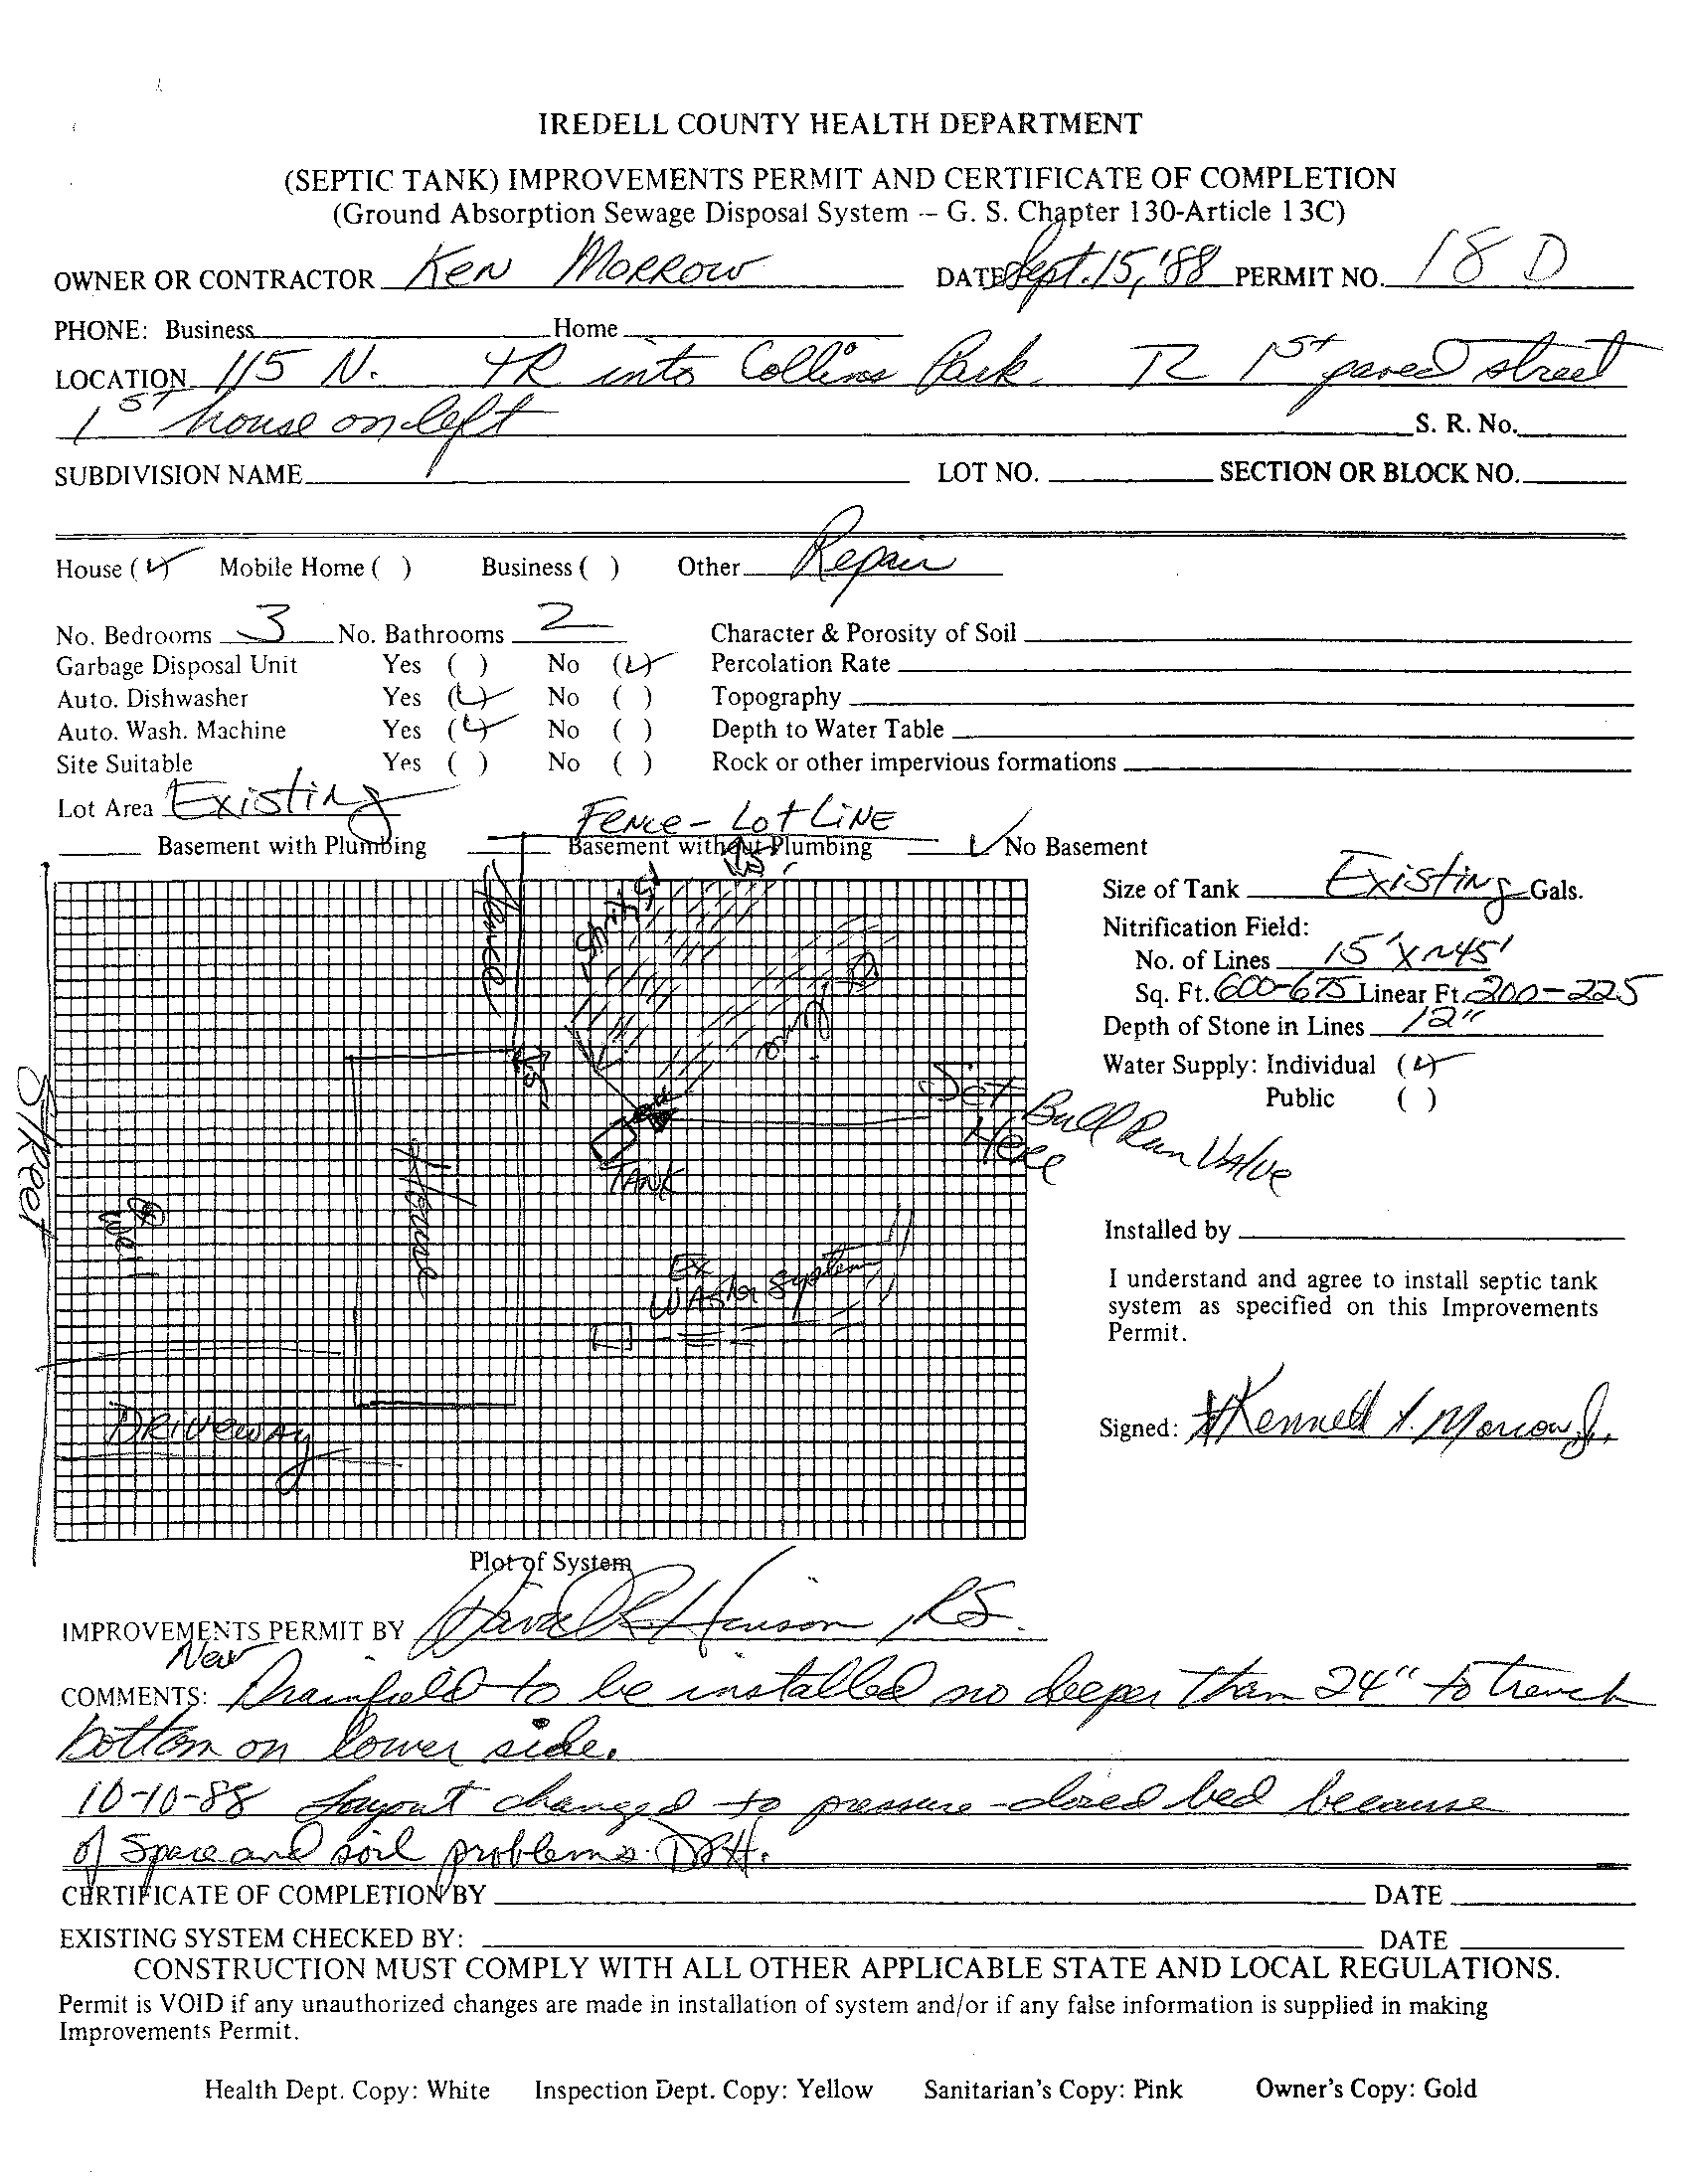 IREDELL COUNTY HEALTH DEPARTMENT
(SEPTIC TANK) IMPROVEMENTS PERMIT AND CERTIFICATE OF COMPLETION
(Ground Absorption Sewage Disposal System -- G. S. Chapter 130-Article 13C)
OWNER OR CONTRACTOR Ken Morrow DATE Sept. 15, '88 PERMIT NO. 18 D
PHONE: Business Home
LOCATION 115 N. TR into Collins Park TR 1st paved street
1st house on left S. R. No.
SUBDIVISION NAME LOT NO. SECTION OR BLOCK NO.
House (✓) Mobile Home ( ) Business ( ) Other Repair
No. Bedrooms 3 No. Bathrooms 2 Character & Porosity of Soil
Garbage Disposal Unit Yes ( ) No (✓) Percolation Rate
Auto. Dishwasher Yes (✓) No ( ) Topography
Auto. Wash. Machine Yes (✓) No ( ) Depth to Water Table
Site Suitable Yes ( ) No ( ) Rock or other impervious formations
Lot Area Existing
Fence - Lot LINE
Basement with Plumbing Basement without Plumbing ✓ No Basement
Size of Tank Existing Gals.
Nitrification Field:
No. of Lines 15' X ~45'
Sq. Ft. 600-675 Linear Ft. 200-225
Depth of Stone in Lines 12"
Water Supply: Individual (✓)
Public ( )
Fence
Set Ball Run Valve
Here
Street
House
TANK
Ex
Washer System
DRIVEWAY
Installed by
I understand and agree to install septic tank
system as specified on this Improvements
Permit.
Signed: Kenneth Morrow Jr.
Plot of System
IMPROVEMENTS PERMIT BY David R Henson, RS.
COMMENTS: New Drainfield to be installed no deeper than 24" to trench
bottom on lower side.
10-10-88 Layout changed to pressure-dosed bed because
of space and soil problems. DRH.
CERTIFICATE OF COMPLETION BY DATE
EXISTING SYSTEM CHECKED BY: DATE
CONSTRUCTION MUST COMPLY WITH ALL OTHER APPLICABLE STATE AND LOCAL REGULATIONS.
Permit is VOID if any unauthorized changes are made in installation of system and/or if any false information is supplied in making
Improvements Permit.
Health Dept. Copy: White Inspection Dept. Copy: Yellow Sanitarian's Copy: Pink Owner's Copy: Gold